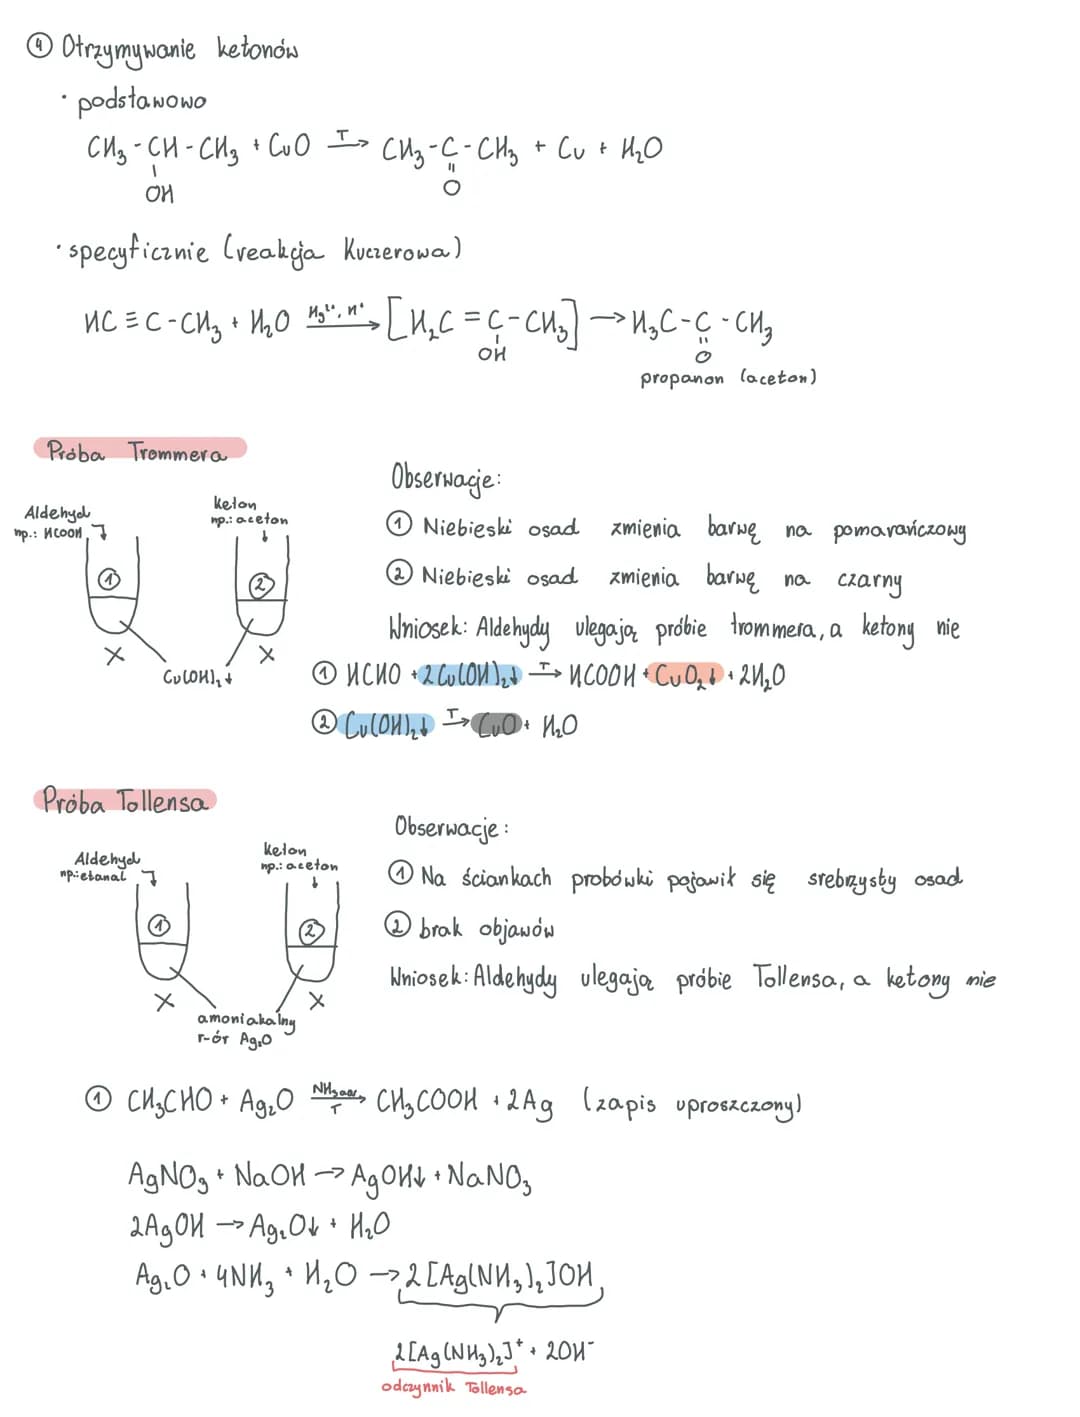 ④ Otrzymywanie ketonów
· podstawowo
CH₃ - CH - CH₃ + CuO T→ CH₃ - C - CH₃ + Cu + H₂O
OH
O
· specyficznie (reakcja Kuczerowa)
HC ≡ C - CH₃ + H₂O Hg²⁺, H⁺→ [H₂C = C - CH₃] → H₃C - C - CH₃
OH
O
propanon (aceton)
Próba Trommera
Aldehyd
np.: HCOOH
①
keton
np.: aceton
②
Cu(OH)₂↓
Obserwacje:
① Niebieski osad zmienia barwę na pomarańczowy
② Niebieski osad zmienia barwę na czarny
Wniosek: Aldehydy ulegają próbie trommera, a ketony nie
① HCHO + 2Cu(OH)₂↓ T→ HCOOH + CuO₂↓ + 2H₂O
② Cu(OH)₂↓ T→ CuO + H₂O
Próba Tollensa
Aldehyd
np.: etanal
①
keton
np.: aceton
②
amoniakalny
r-ór Ag₂O
Obserwacje:
① Na ściankach probówki pojawił się srebrzysty osad
② brak objawów
Wniosek: Aldehydy ulegają próbie Tollensa, a ketony nie
① CH₃CHO + Ag₂O NH₃aq, T→ CH₃COOH + 2Ag (zapis uproszczony)
AgNO₃ + NaOH → AgOH↓ + NaNO₃
2AgOH → Ag₂O↓ + H₂O
Ag₂O + 4NH₃ + H₂O → 2[Ag(NH₃)₂]OH
2[Ag(NH₃)₂]⁺ + 2OH⁻
odczynnik Tollensa